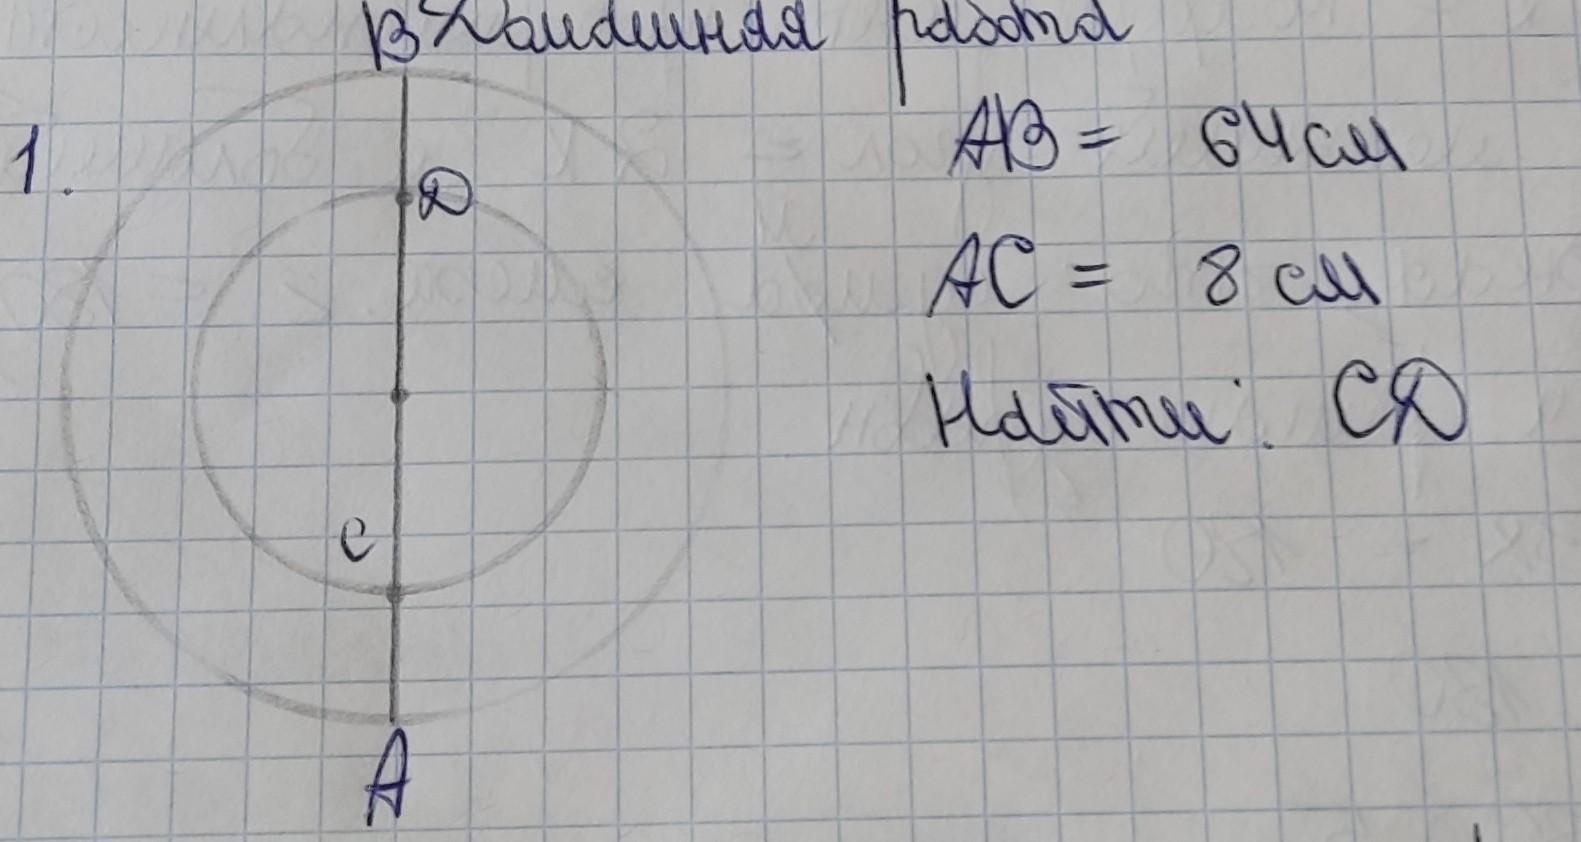 Домашняя работа
1.
B
D
C
A
AB = 64 см
AC = 8 см
Найти: CD